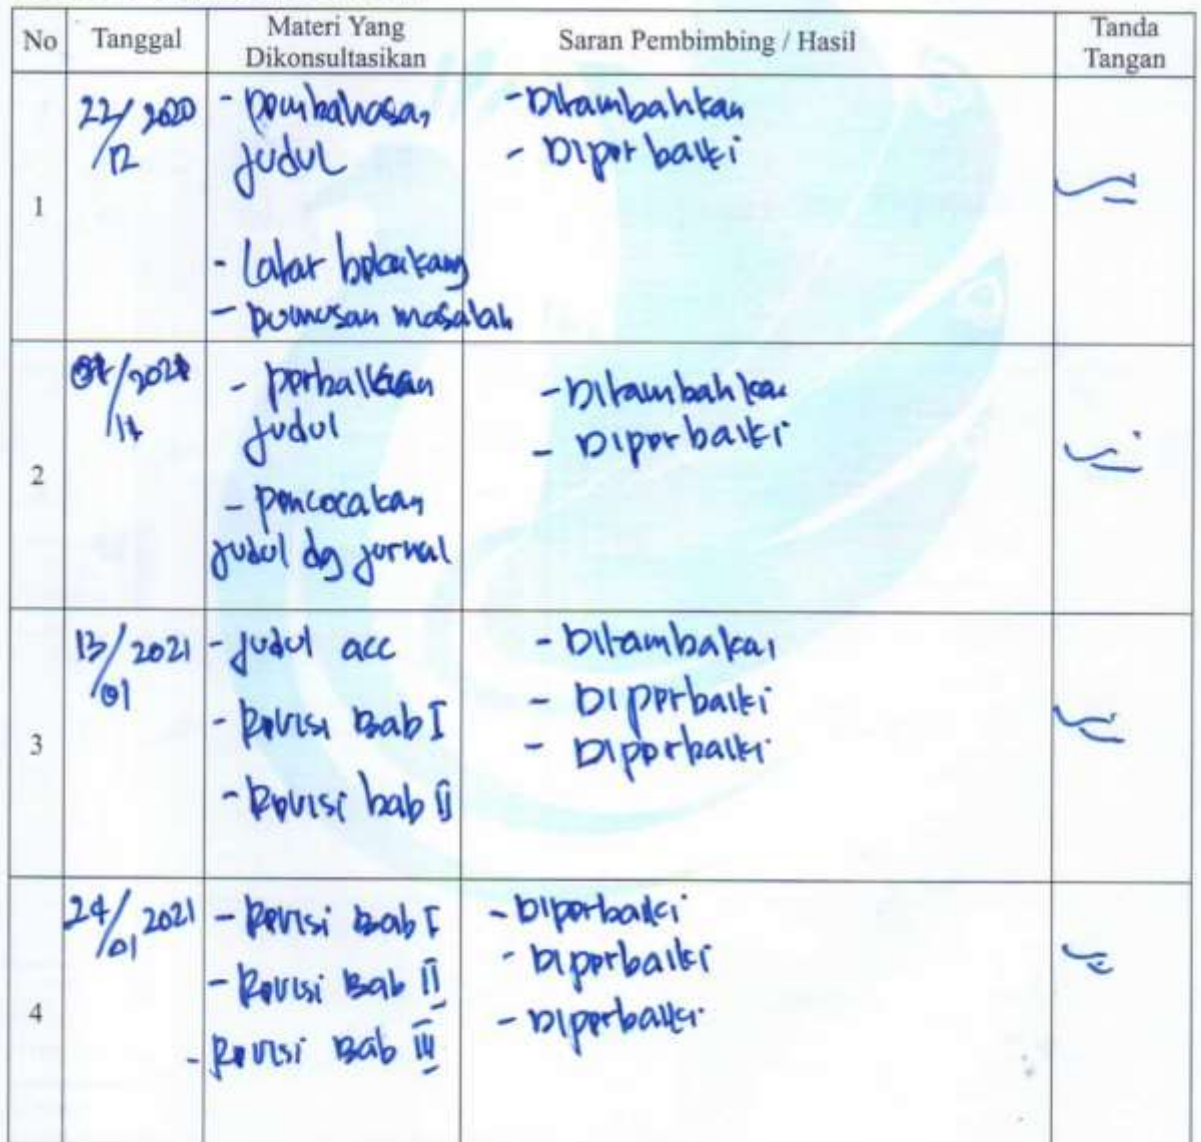 No Tanggal Materi Yang Dikonsultasikan Saran Pembimbing / Hasil Tanda Tangan
1
22/12 2020
- pembahasan
judul
- Latar belakang
- Rumusan masalah
- Ditambahkan
- Diperbaiki
2
/2021
- perbaikan
judul
- pencocakan
judul dg jurnal
- Ditambahkan
- Diperbaiki
3
13/01 2021
- judul acc
- Revisi Bab I
- Revisi bab II
- Ditambakan
- Diperbaiki
- Diperbaiki
4
24/01 2021
- Revisi Bab I
- Revisi Bab II
- Revisi Bab III
- Diperbaiki
- Diperbaiki
- Diperbaiki